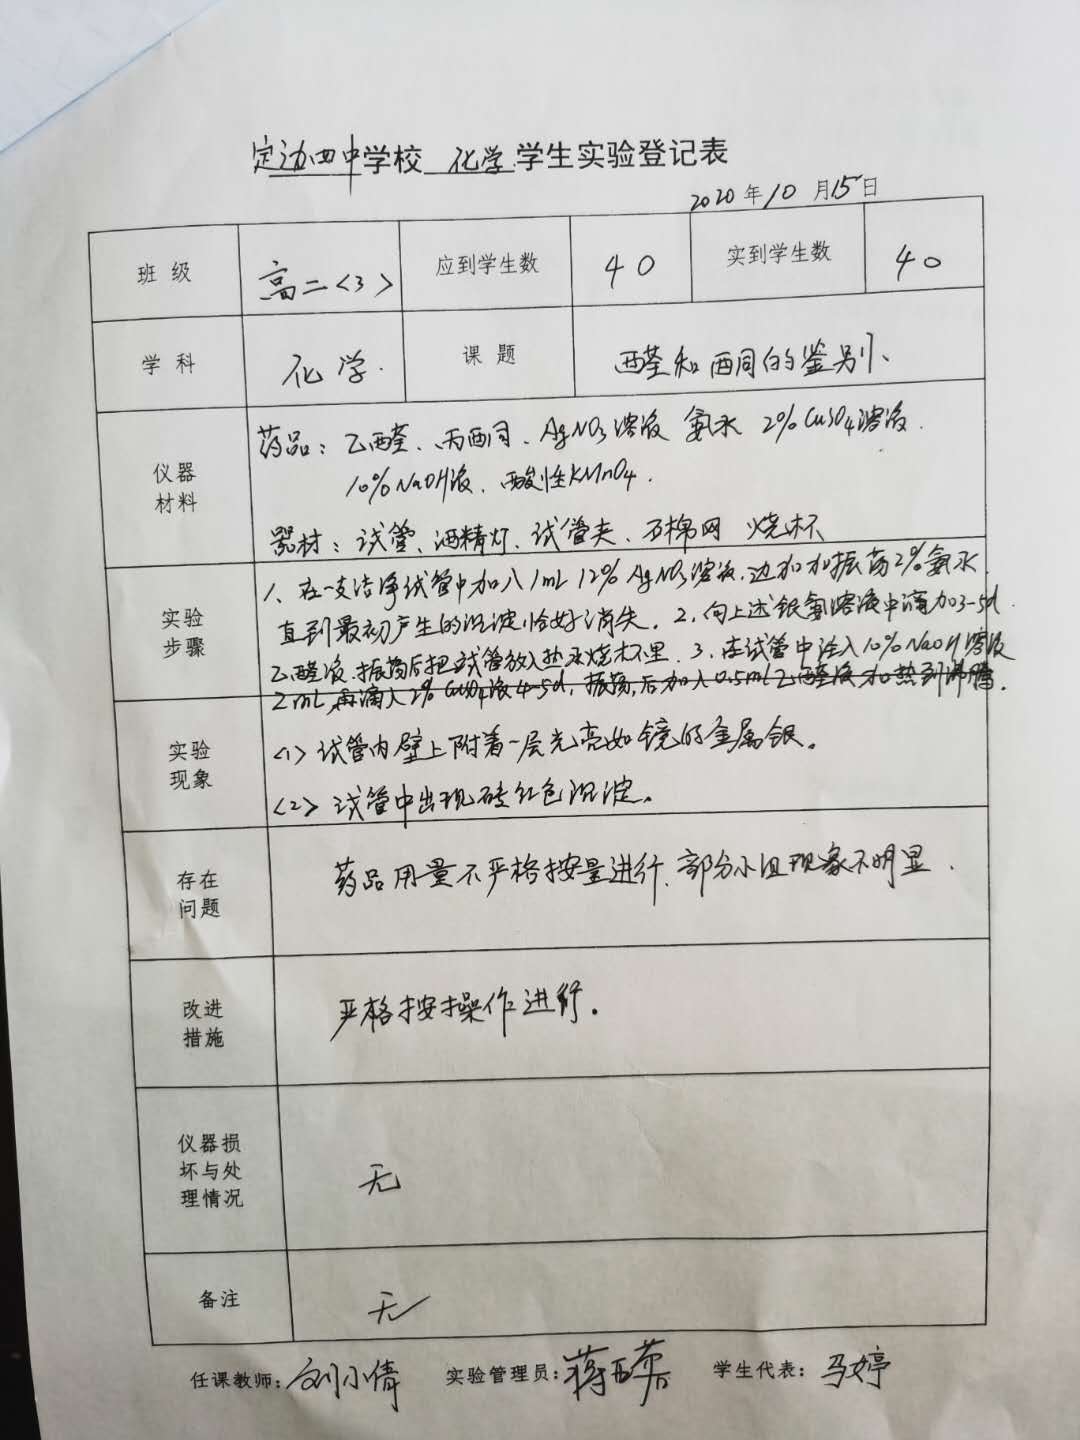 定边四中学校 化学 学生实验登记表
2020年10月15日
班级 高二<3> 应到学生数 40 实到学生数 40
学科 化学. 课题 醛和酮的鉴别、
仪器材料
药品：乙醛、丙酮、AgNO3溶液 氨水 2% CuSO4溶液.
10% NaOH液、酸性KMnO4.
器材：试管、酒精灯、试管夹、石棉网 烧杯
实验步骤
1、在一支洁净试管中加入1mL 12% AgNO3溶液,边加加振荡2%氨水.
直到最初产生的沉淀恰好消失. 2、向上述银氨溶液中滴加3-5d
乙醛液.振荡后把试管放入热水烧杯里. 3、在试管中注入10% NaOH溶液
2mL,再滴入2% CuSO4液4-5d,振荡,后加入0.5mL乙醛液加热到沸腾.
实验现象
<1> 试管内壁上附着一层光亮如镜的金属银。
<2> 试管中出现砖红色沉淀。
存在问题
药品用量不严格按量进行.部分小组现象不明显.
改进措施
严格按操作进行。
仪器损坏与处理情况
无
备注
无
任课教师：刘小倩 实验管理员： 学生代表：马婷